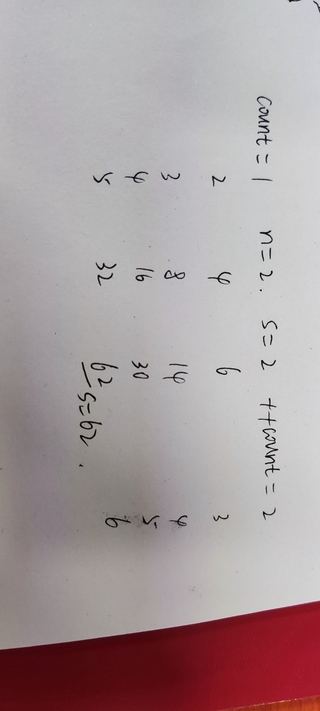 count = 1 n = 2. s = 2 ++count = 2
2 4 6 3
3 8 14 4
4 16 30 5
5 32 62 6
s=62.